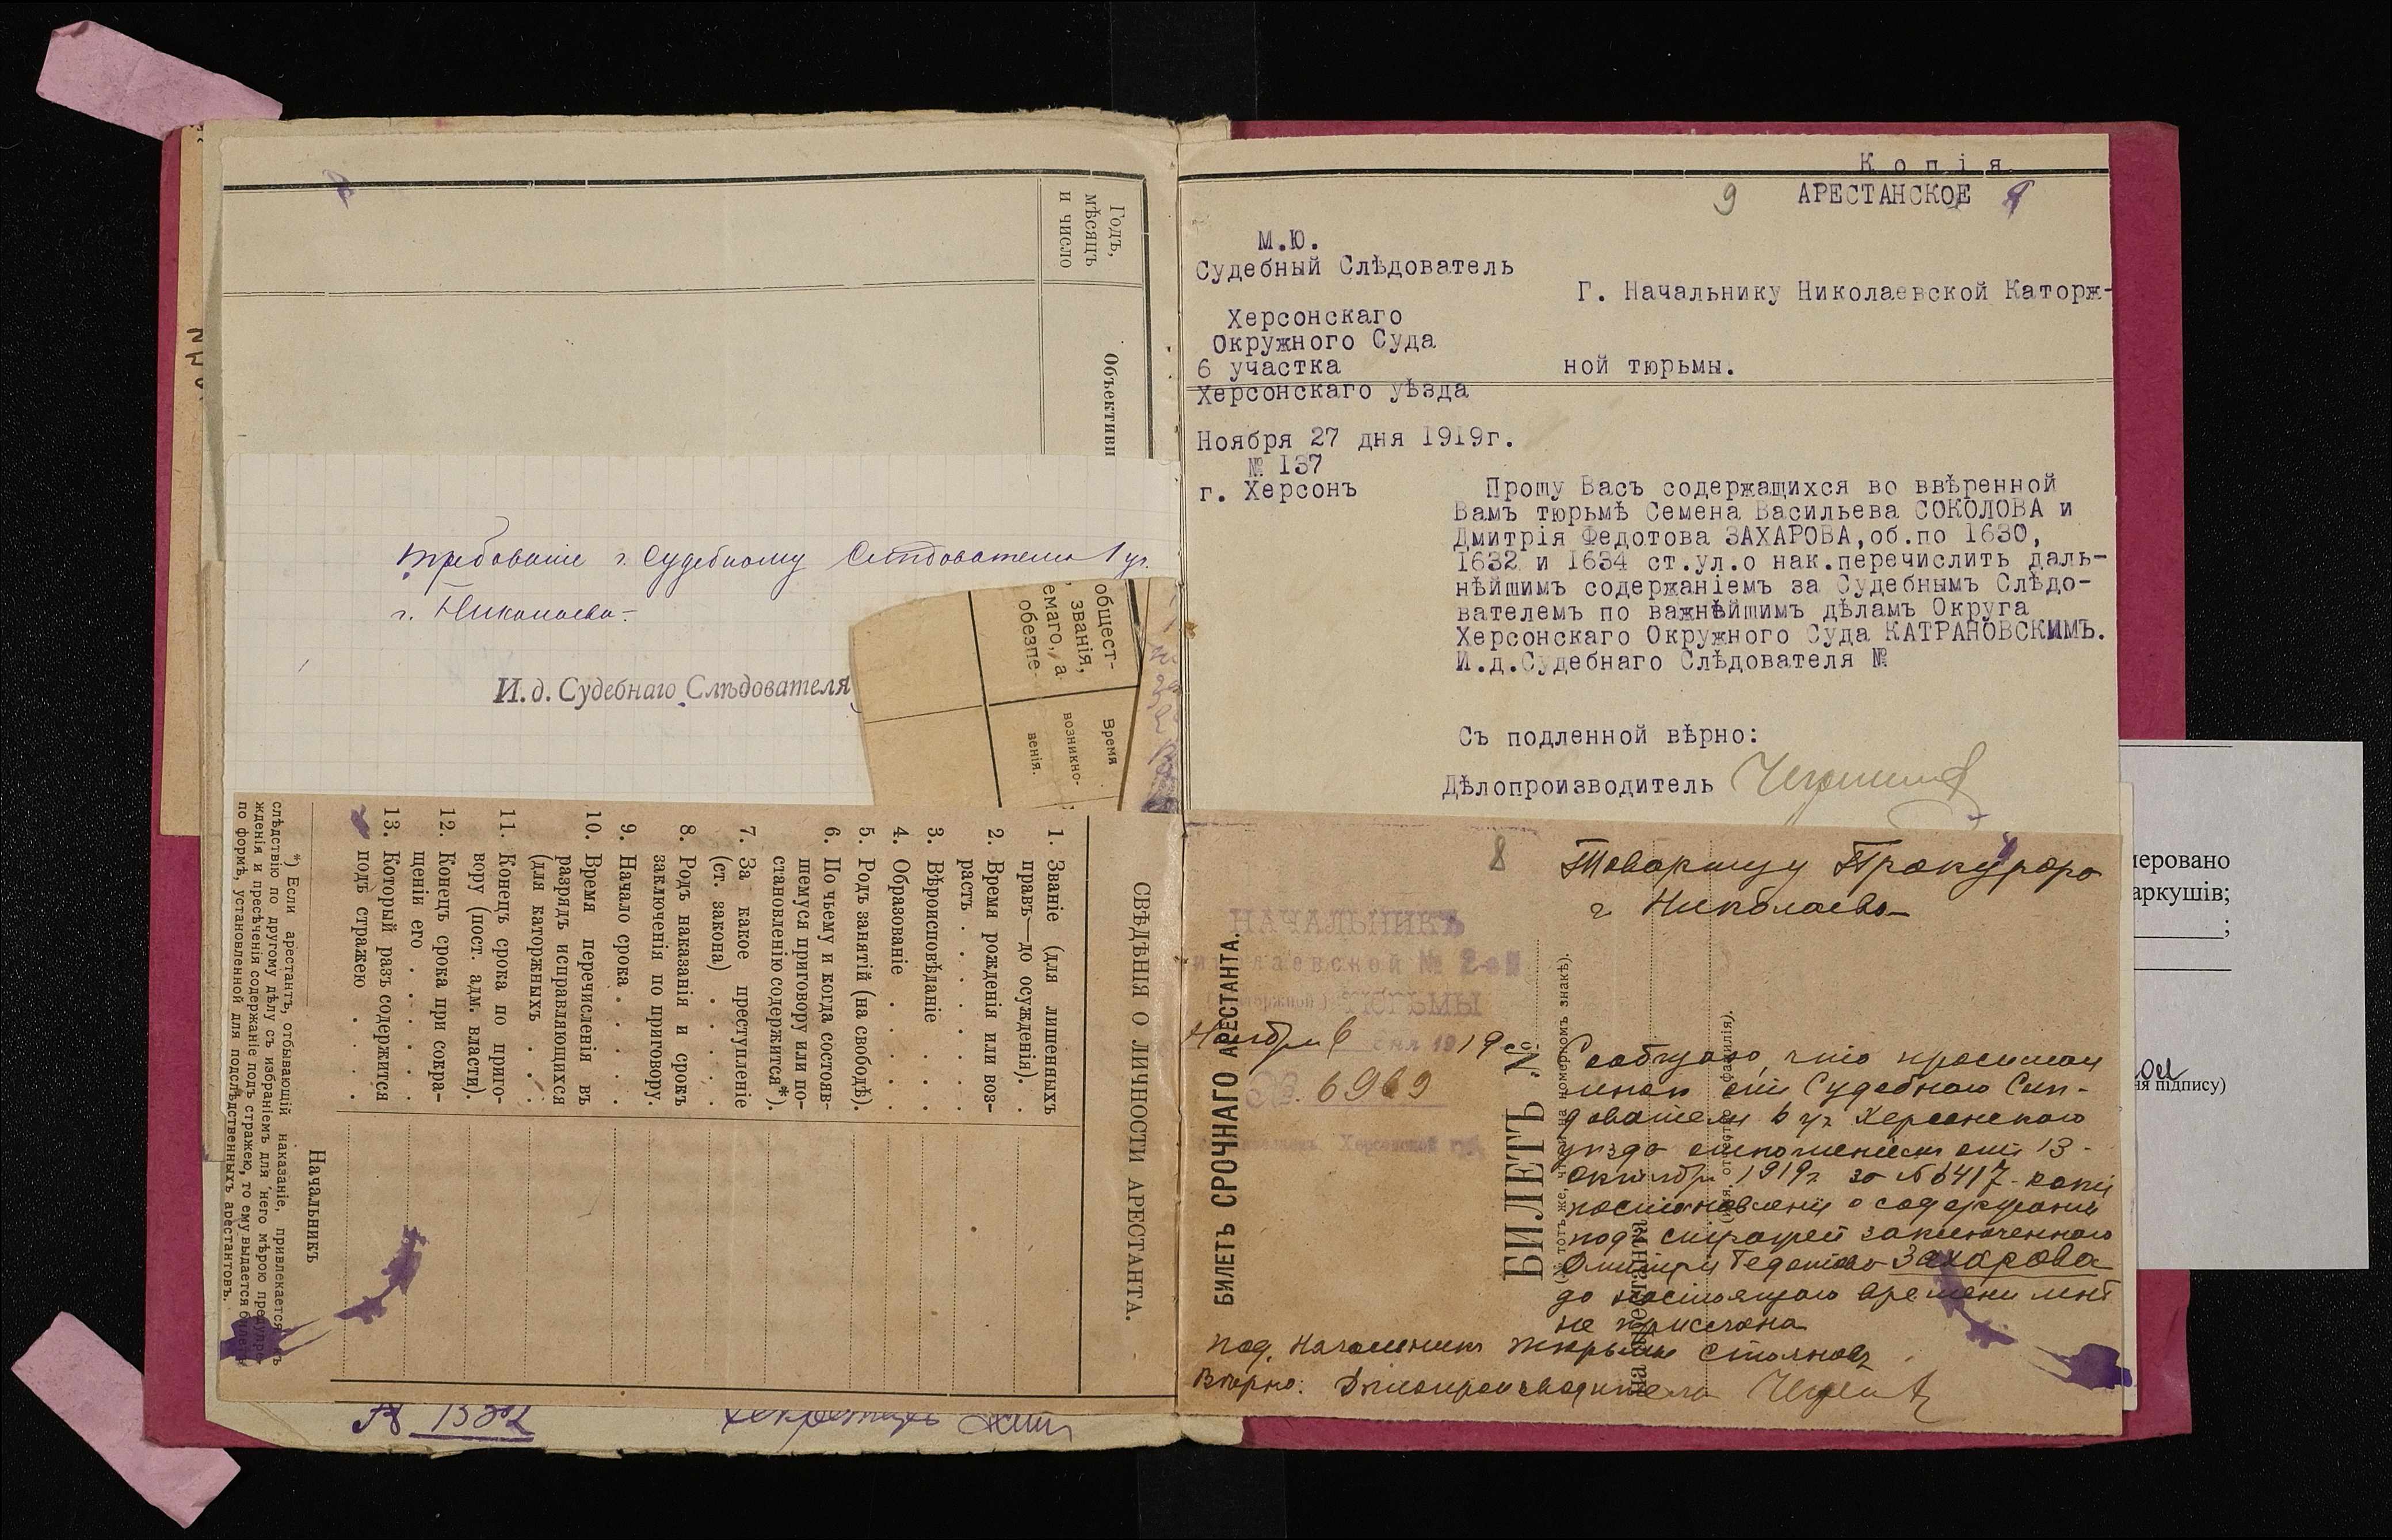 Годъ,
мѣсяцъ
и число
Объективн
требованіе г. Судебному Слѣдователю 1 уч.
г. Николаева.
И. д. Судебнаго Слѣдователя
общест-
званія,
емаго, а
обезпе-
Время
возникно-
венія.
СВѢДѢНІЯ О ЛИЧНОСТИ АРЕСТАНТА.
1. Званіе (для лишенныхъ
правъ—до осужденія).
2. Время рожденія или воз-
растъ
3. Вѣроисповѣданіе
4. Образованіе
5. Родъ занятій (на свободѣ).
6. По чьему и когда состояв-
шемуся приговору или по-
становленію содержится*).
7. За какое преступленіе
(ст. закона)
8. Родъ наказанія и срокъ
заключенія по приговору.
9. Начало срока
10. Время перечисленія въ
разрядъ исправляющихся
(для каторжныхъ
11. Конецъ срока по приго-
вору (пост. адм. власти).
12. Конецъ срока при сокра-
щеніи его
13. Который разъ содержится
подъ стражею
Начальникъ
*) Если арестантъ, отбывающій наказаніе, привлекается къ
слѣдствію по другому дѣлу съ избраніемъ для него мѣрою предупре-
жденія и пресѣченія содержаніе подъ стражею, то ему выдается билетъ
по формѣ, установленной для подслѣдственныхъ арестантовъ.
№ 1332
Секретарь
Копія
9 АРЕСТАНСКОЕ
М.Ю.
Судебный Слѣдователь
Г. Начальнику Николаевской Каторж-
Херсонскаго
Окружного Суда
6 участка ной тюрьмы.
Херсонскаго уѣзда
Ноября 27 дня 1919г.
№ 137
г. Херсонъ
Прошу Васъ содержащихся во ввѣренной
Вамъ тюрьмѣ Семена Васильева СОКОЛОВА и
Дмитрія Федотова ЗАХАРОВА,об.по 1630,
1632 и 1634 ст.ул.о нак.перечислить даль-
нѣйшимъ содержаніемъ за Судебнымъ Слѣдо-
вателемъ по важнѣйшимъ дѣламъ Округа
Херсонскаго Окружного Суда КАТРАНОВСКИМЪ.
И.д.Судебнаго Слѣдователя №
Съ подленной вѣрно:
Дѣлопроизводитель
8
Товарищу Прокурора
г. Николаева
НАЧАЛЬНИКЪ
Николаевской № 2-й
(каторжной) ТЮРЬМЫ
Ноября 6 дня 1919 г.
№. 6969
Херсонской губ.
БИЛЕТЪ СРОЧНАГО АРЕСТАНТА.
БИЛЕТЪ №
(имя, отчество, фамилія).
Сообщаю, что просимая
мною отъ Судебнаго Слѣ-
дователя 6 уч. Херсонскаго
уѣзда отношеніемъ отъ 13
Октября 1919г за № 6417 копія
постановленія о содержаніи
подъ стражей заключеннаго
Дмитрія Федотова Захарова
до настоящаго времени мнѣ
не прислана
под. Начальникъ тюрьмы Стояновъ
Вѣрно: Дѣлопроизводитель
меровано
аркушів;
;
ня підпису)